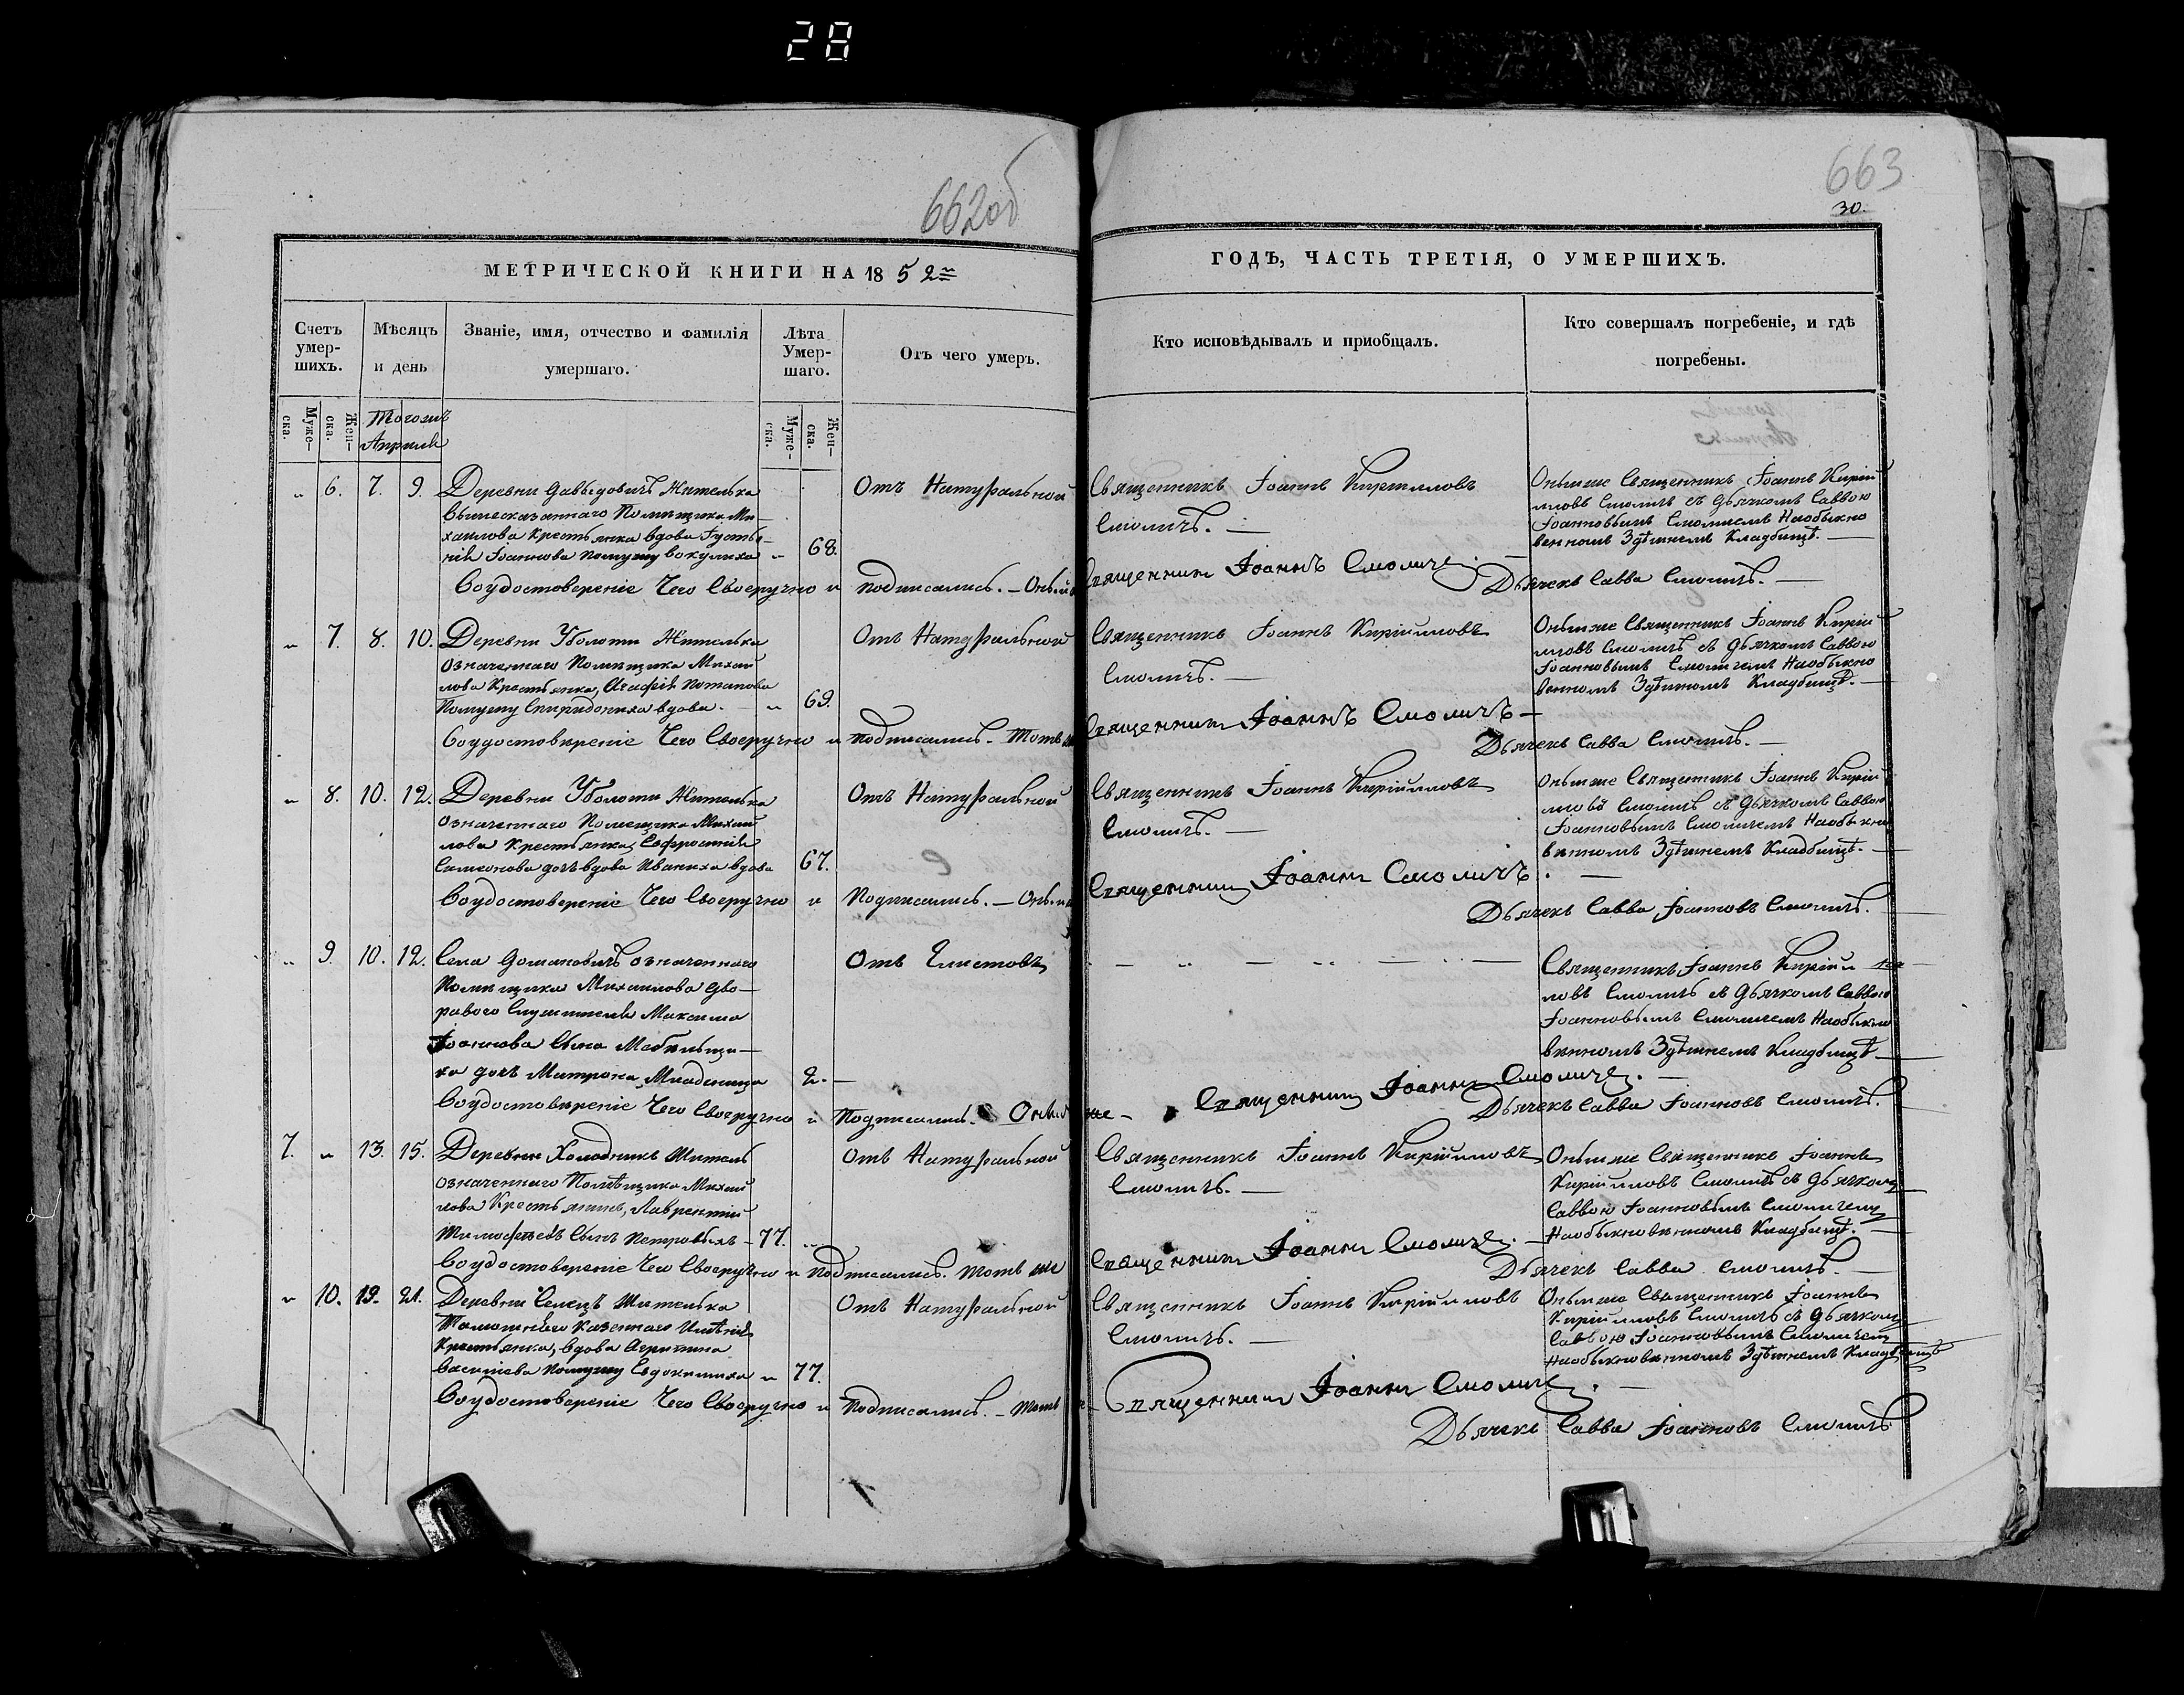 28
662об
663
30.
МЕТРИЧЕСКОЙ КНИГИ НА 1852
ГОДЪ, ЧАСТЬ ТРЕТІЯ, О УМЕРШИХЪ.
Счетъ умер-
шихъ.
Мѣсяцъ
и день
Званіе, имя, отчество и фамилія
умершаго.
Лѣта
Умер-
шаго.
Отъ чего умеръ.
Кто исповѣдывалъ и пріобщалъ.
Кто совершалъ погребеніе, и гдѣ
погребены.
Муже-
ска.
Жен-
ска.
Апреля
Муже-
ска.
Жен-
ска.
6. 7. 9. Деревни Давыдовичъ Жителька
Вышесказаннаго Помещика Ми
хаилова Крестьянка вдова Густи-
нія Іоаннова помужу Вакулиха 68.
Отъ Натуральной
Священникъ Іоаннъ Кирилловъ
Смоличъ. —
Оныйже Священникъ Іоаннъ Кирій
лловъ Смоличъ съ Дьячкомъ Саввою
Іоанновымъ Смоличемъ Наобыкно
венномъ Здѣшнемъ Кладбищѣ. —
Воудостовереніе Чего Своеручно и подписались. — Священник Іоаннъ Смоличъ
Дьячекъ Савва Смоличъ. —
7. 8. 10. Деревни Уболоти Жителька
Означеннаго Помещика Михаи
лова Крестьянка, Агафія Потапова
Помужу Спиридониха вдова. 69.
Отъ Натуральной
Священникъ Іоаннъ Киріилловъ
Смоличъ. —
Оныйже Священникъ Іоаннъ Кирій
лловъ Смоличъ съ Дьячкомъ Саввою
Іоанновымъ Смоличемъ Наобыкно
венномъ Здѣшнемъ Кладбищѣ. —
Воудостовереніе Чего Своеручно и подписались. Тотъ Священник Іоаннъ Смоличъ —
Дьячекъ Савва Смоличъ. —
8. 10. 12. Деревни Уболоти Жителька
означеннаго Помещика Михаи
лова Крестьянка, Софронія
Симеонова дочь вдова Иваниха вдова 67.
Отъ Натуральной
Священникъ Іоаннъ Киріилловъ
Смоличъ. —
Оныйже Священникъ Іоаннъ Кирій
лловъ Смоличъ съ Дьячкомъ Саввою
Іоанновымъ Смоличемъ Наобыкно
венномъ Здѣшнемъ Кладбищѣ. —
Воудостовереніе Чего Своеручно и Подписались. — Священник Іоаннъ Смоличъ. —
Дьячекъ Савва Іоанновъ Смоличъ.
9. 10. 12. Села Домановичъ означеннаго
Помещика Михаилова Дво-
роваго Служителя Максима
Іоаннова Сына
дочь Матрона, Младеница 2. —
Отъ Глистовъ
Священникъ Іоаннъ Киріи
ловъ Смоличъ съ Дьячкомъ Саввою
Іоанновымъ Смоличемъ Наобыкно
венномъ Здѣшнемъ Кладбищѣ
Воудостовереніе Чего Своеручно и Подписались. Оныйже — Священник Іоаннъ Смоличъ. —
Дьячекъ Савва Іоанновъ Смоличъ.
7. 13. 15. Деревни Холодникъ Житель
означеннаго Помѣщика Михаи
лова Крестьянинъ, Лаврентій
Тимофѣевъ Сынъ Петровыхъ - 77.
Отъ Натуральной
Священникъ Іоаннъ Киріилловъ
Смоличъ. —
Оныйже Священникъ Іоаннъ
Киріилловъ Смоличъ съ Дьячкомъ
Саввою Іоанновымъ Смоличемъ
Наобыкновенномъ Кладбищѣ. —
Воудостовереніе Чего Своеручно и подписались. Тотъ же Священник Іоаннъ Смоличъ. —
Дьячекъ Савва Смоличъ. —
10. 19. 21. Деревни Селецъ Жителька
Казеннаго Имѣнія
Крестьянка, вдова Агрипина
Василіева помужу Евдокимиха 77.
Отъ Натуральной
Священникъ Іоаннъ Киріилловъ
Смоличъ. —
Оныйже Священникъ Іоаннъ
Киріилловъ Смоличъ съ Дьячкомъ
Саввою Іоанновымъ Смоличемъ
Наобыкновенномъ Здѣшнемъ Кладбищѣ
Воудостовереніе Чего Своеручно и Подписались. — Тотъ Священник Іоаннъ Смоличъ. —
Дьячекъ Савва Іоанновъ Смоличъ